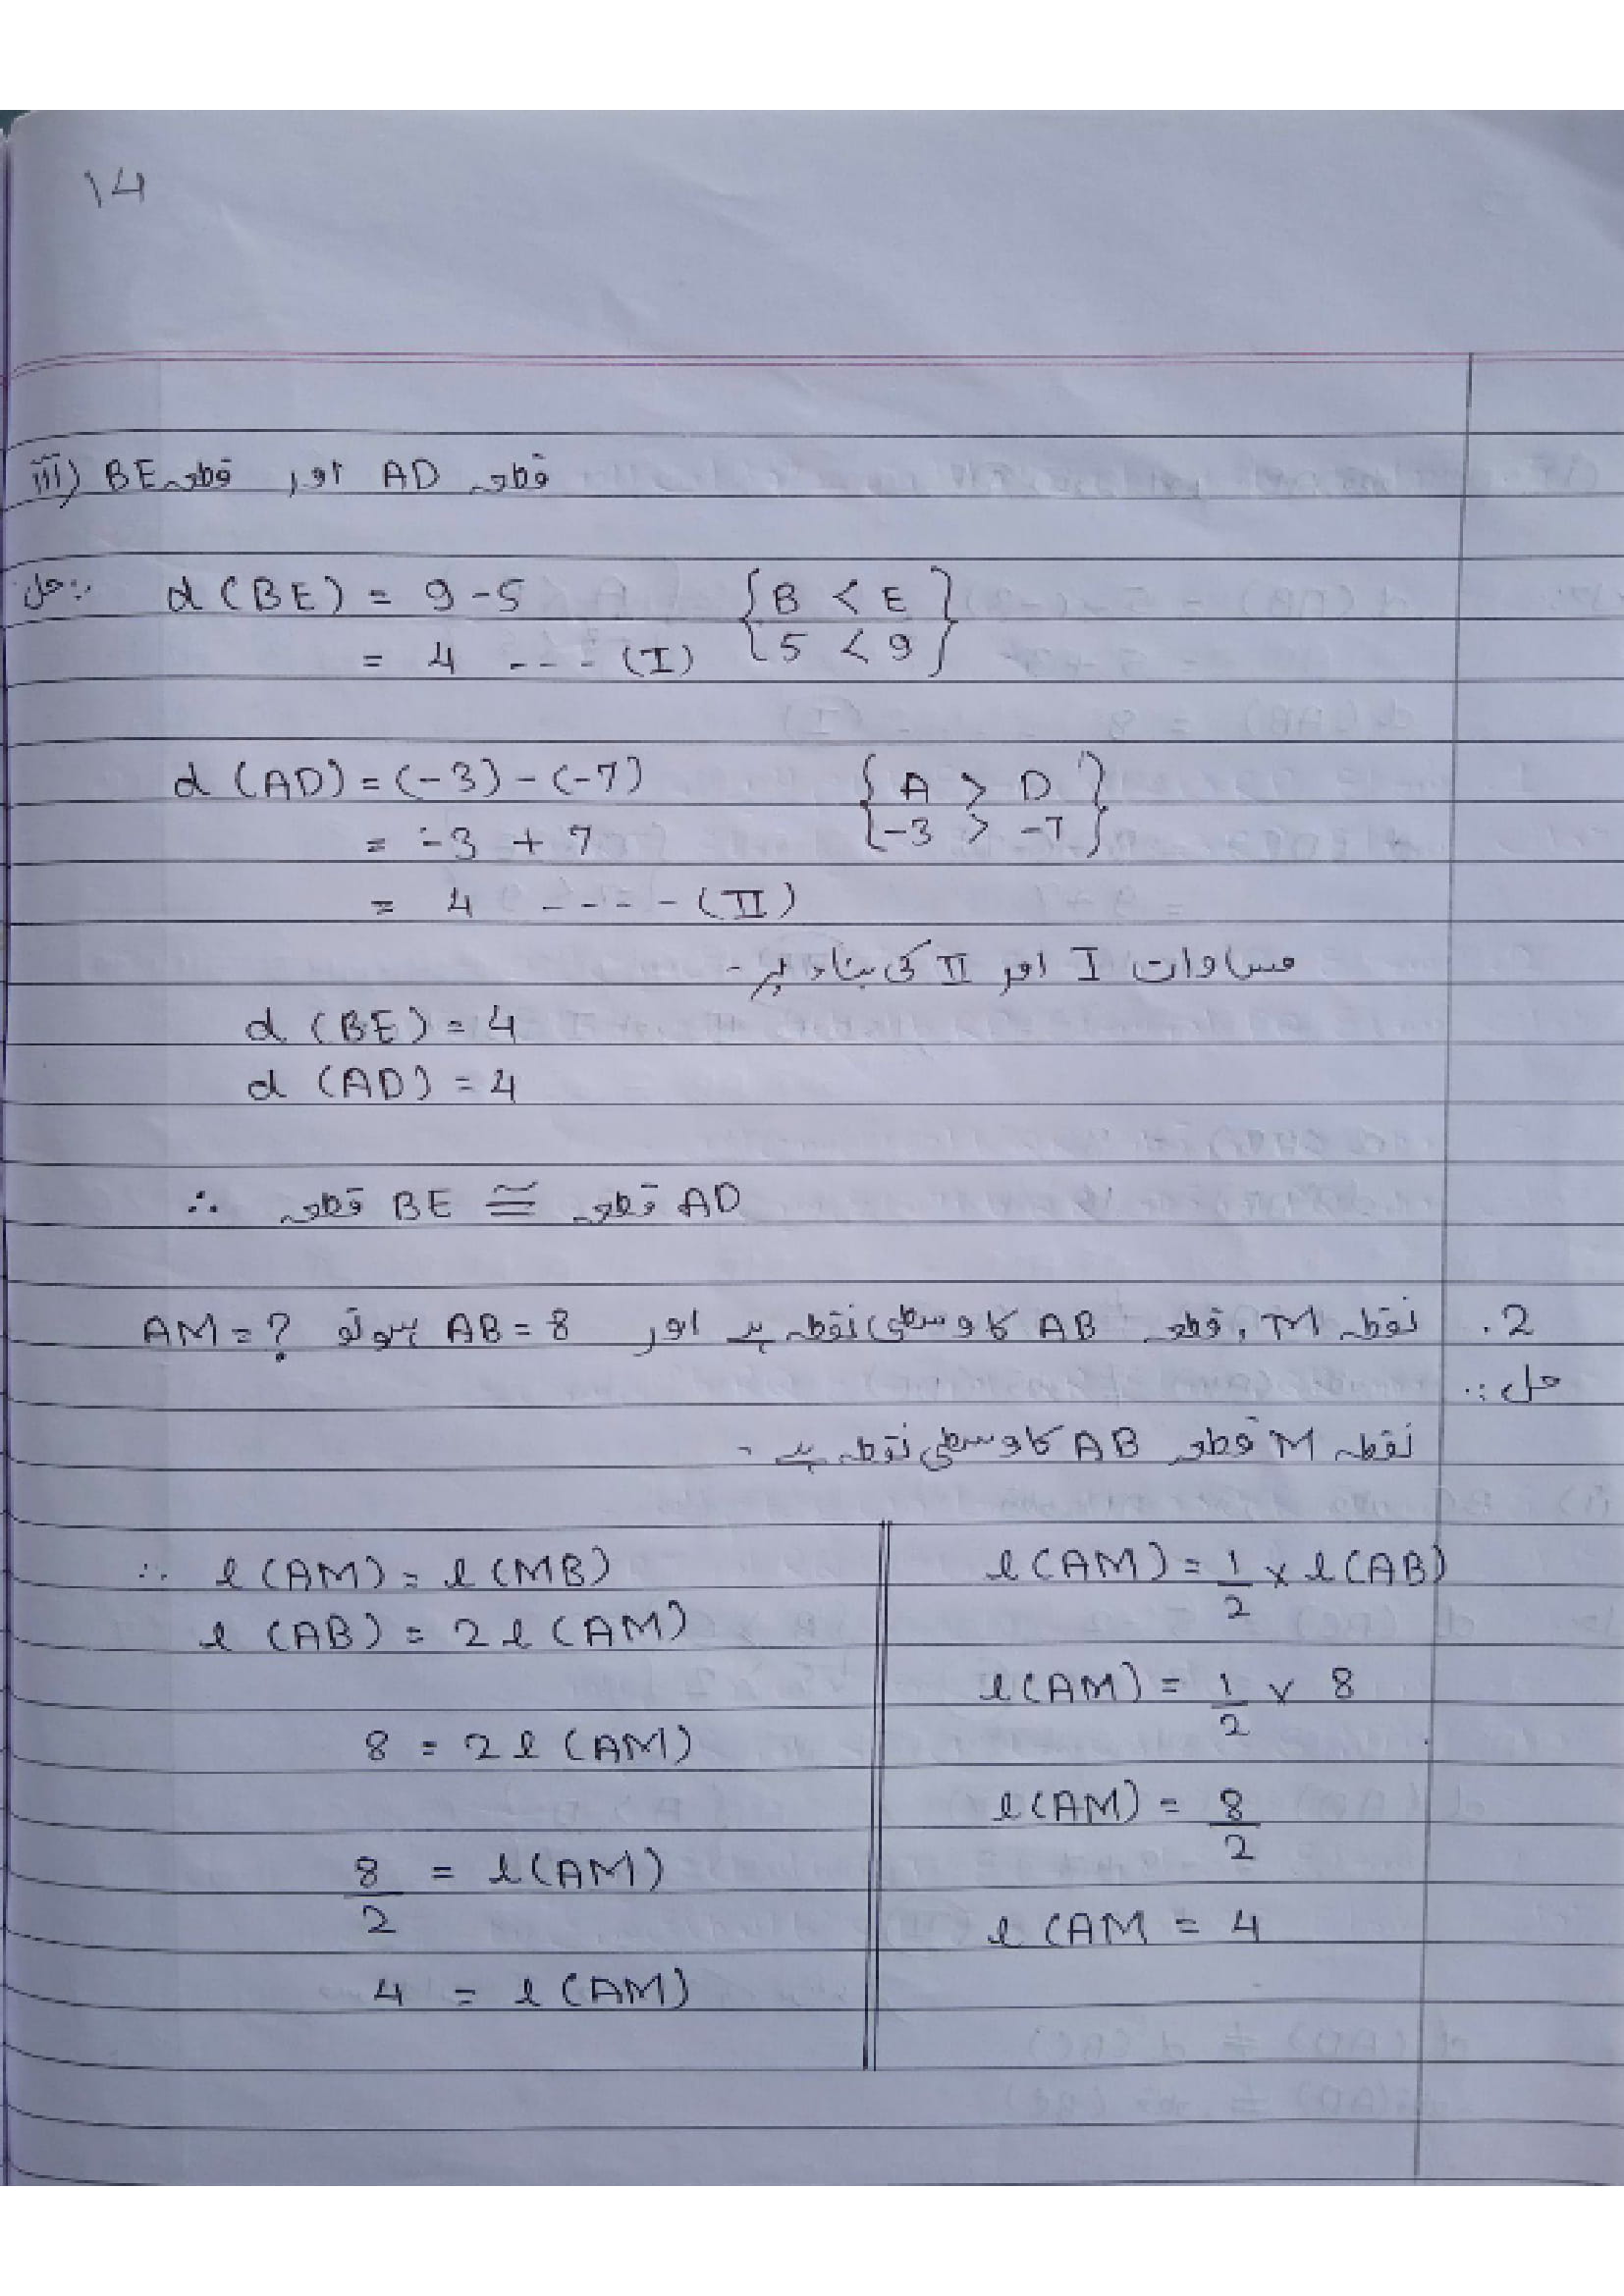 ۱۴
iii) قطعہ BE اور قطعہ AD
حل:. d (BE) = 9 - 5 { B < E }
= 4 --- (I) { 5 < 9 }
d (AD) = (-3) - (-7) { A > D }
= -3 + 7 { -3 > -7 }
= 4 ---- (II)
مساوات I اور II کی بناء پر -
d (BE) = 4
d (AD) = 4
∴ قطعہ BE ≅ قطعہ AD
2. نقطہ M، قطعہ AB کا وسطی نقطہ ہے اور AB = 8 ہو تو AM = ?
حل:.
نقطہ M قطعہ AB کا وسطی نقطہ ہے -
∴ l (AM) = l (MB)
l (AB) = 2 l (AM)
8 = 2 l (AM)
8/2 = l (AM)
4 = l (AM)
l (AM) = 1/2 × l (AB)
l (AM) = 1/2 × 8
l (AM) = 8/2
l (AM = 4